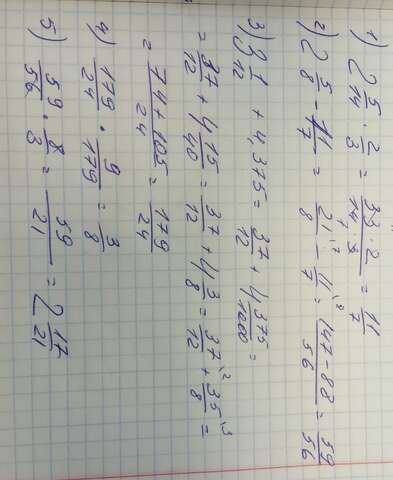 1) 2 5/14 · 2/3 = 33·2/14·3 = 11/7
2) 2 5/8 - 11/7 = 21/8 - 11/7 = 147-88/56 = 59/56
3) 3 1/12 + 4,375 = 37/12 + 4 375/1000 =
= 37/12 + 4 15/40 = 37/12 + 4 3/8 = 37/12 + 35/8 =
= 74+105/24 = 179/24
4) 179/24 · 9/179 = 3/8
5) 59/56 · 8/3 = 59/21 = 2 17/21